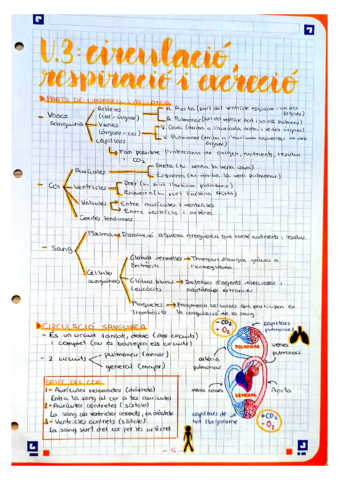 U.3: circulació,
respiració i excreció
PARTS DE L'APARELL CIRCULATORI
Artèries
(cor-òrgans)
A. Aorta (surt del ventricle esquerre i va als òrgans)
A. Pulmonar (surt del ventricle dret i va als pulmons)
- Vasos
sanguinis
Venes
(òrgans-cor)
V. Cava
V. Pulmonar
Capil·lars
Fan possible l'intercanvi de oxigen, nutrients, residus
i CO2
- Cor
Aurícules
Dreta (hi arriba la vena cava)
Esquerra (hi arriba la vena pulmonar)
Ventricles
Dret (hi surt l'artèria pulmonar)
Esquerre (hi surt l'artèria Aorta)
Vàlvules
Entre aurícules i ventricles
Entre ventricle i artèria
Cordes tendinoses
- Sang
Plasma → Dissolució aquosa groguenca que conté nutrients i residus
Cèl·lules
sanguínies
Glòbuls vermells → Transport d'oxigen gràcies a
Eritròcits
l'hemoglobina
Glòbuls blancs → Destrueix d'agents infecciosos i
Leucòcits
substàncies estranyes
Plaquetes → Fragments cel·lulars que participen en
Trombòcits
la coagulació de la sang
CIRCULACIÓ SANGUÍNIA
- És un circuit tancat, doble (dos circuits)
i complet (cor ha de
- 2 circuits
pulmonar (menor)
general (major)
BATEC DEL COR
1- Aurícules relaxades (diàstole)
Entra la sang al cor a les aurícules
2- Aurícules contretes (sístole)
La sang als ventricles relaxats, en diàstole
3- Ventricles contrets (sístole)
La sang surt del cor per les artèries
- CO2
+ O2
capil·lars
pulmonars
PULMONAR
artèria
pulmonar
venes
pulmonars
venes caves
Aorta
GENERAL
capil·lars de
tot l'organisme
+ CO2
- O2
- 5 -